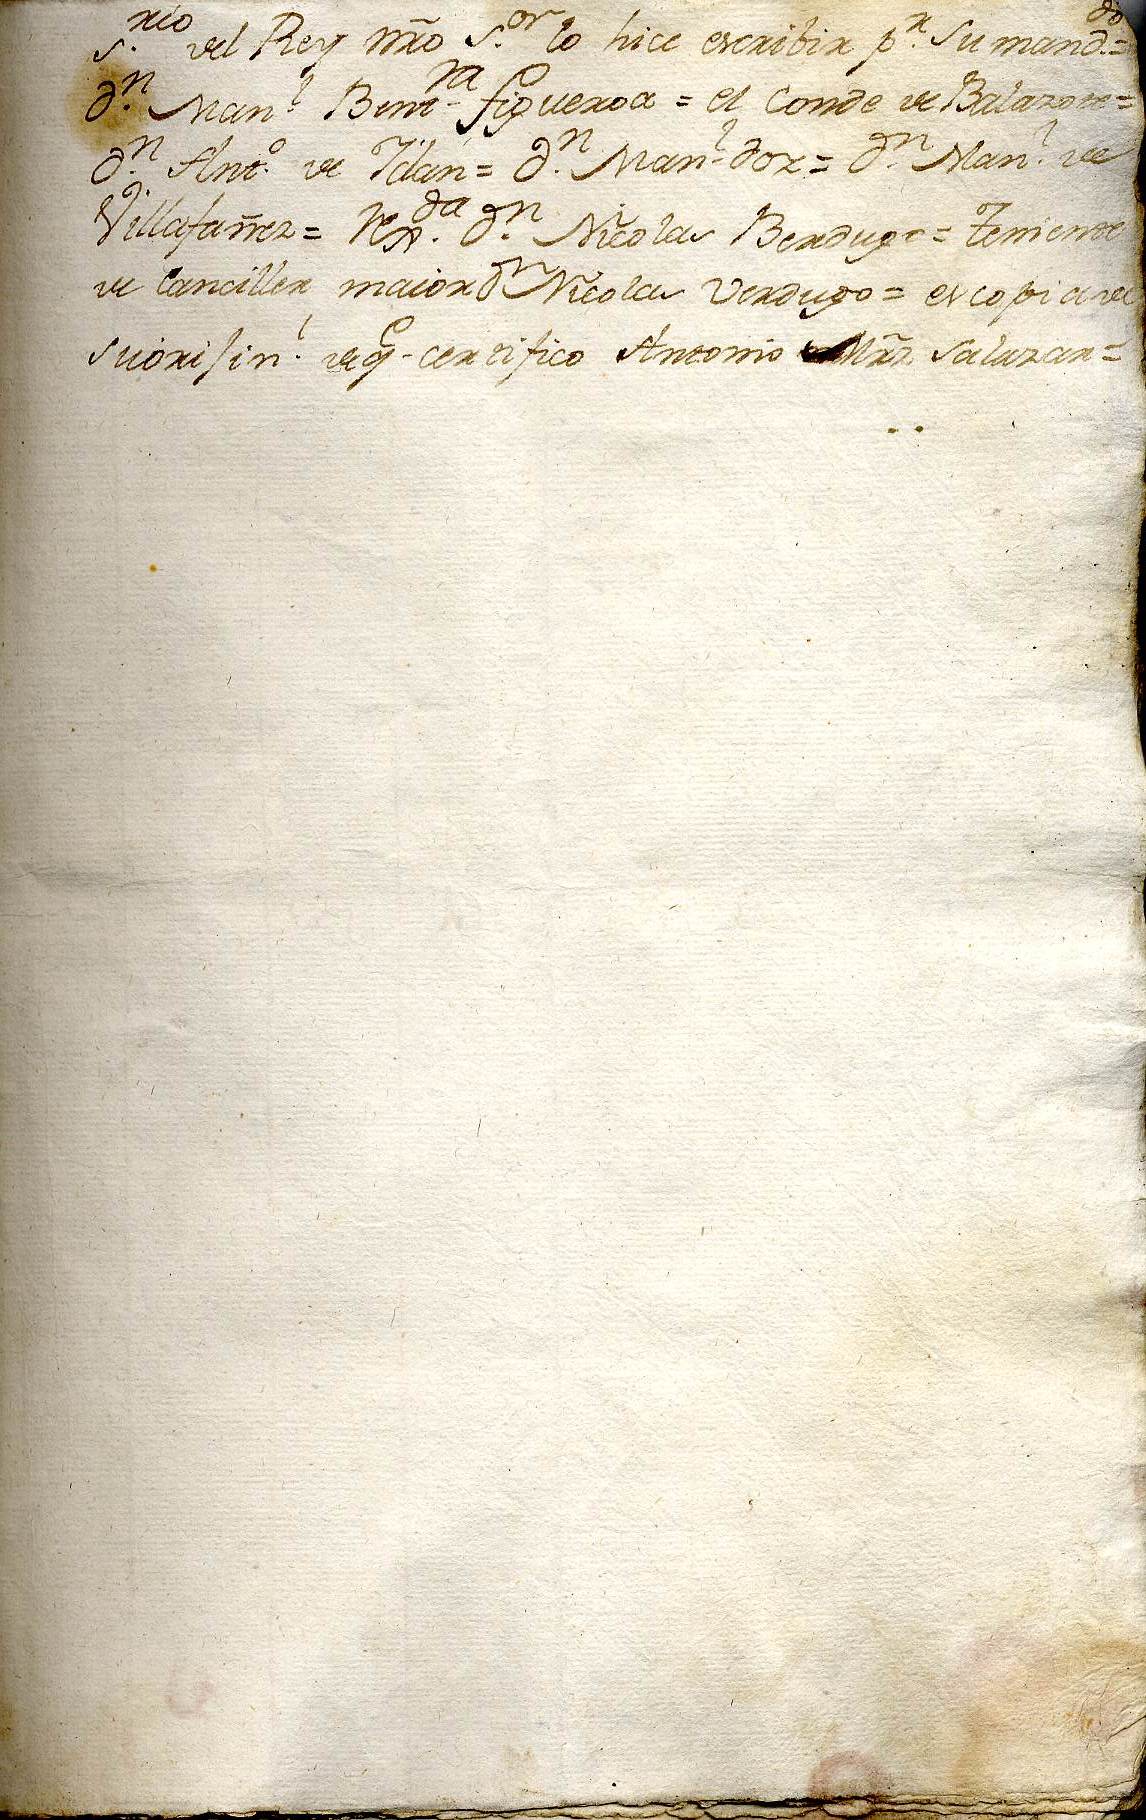 S.rio del Rey nr̃o S.or lo hice escribir p.r Su mand.do =
D.n Man.l Bent.ra figueroa = el Conde de Balazote =
D.n Ant.o de Ydán = D.n Man.l doz = D.n Man.l de
Villafañez = Rex.da D.n Nicolas Berdugo = Teniente
de Canciller maior D.n Nicolas Verdugo = es copia de
su orijin.l de q.e certifico Antonio Mrz̃ Salazar =